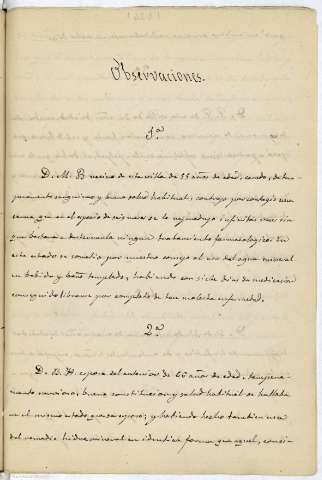 Observaciones.
1.ª
D. M. B. vecino de esta villa de 55 años de edad, casado, de tem-
peramento sanguíneo y buena salud habitual; contrajo por contagio una
sarna, que en el espacio de seis meses se le reprodujo infinitas veces sin
que bastara a exterminarla ningun tratamiento farmacologico. En
este estado se sometio por nuestro consejo al uso del agua mineral
en bebida y baño templado, habiendo con siete dias de medicacion
conseguido librarse por completo de tan molesta enfermedad.
2.ª
D. B. H. esposa del anterior de 66 años de edad, tempera-
mento nervioso, buena constitucion y salud habitual se hallaba
en el mismo estado que su esposo; y habiendo hecho tambien uso
del remedio hidromineral en identica forma que aquel, consi-